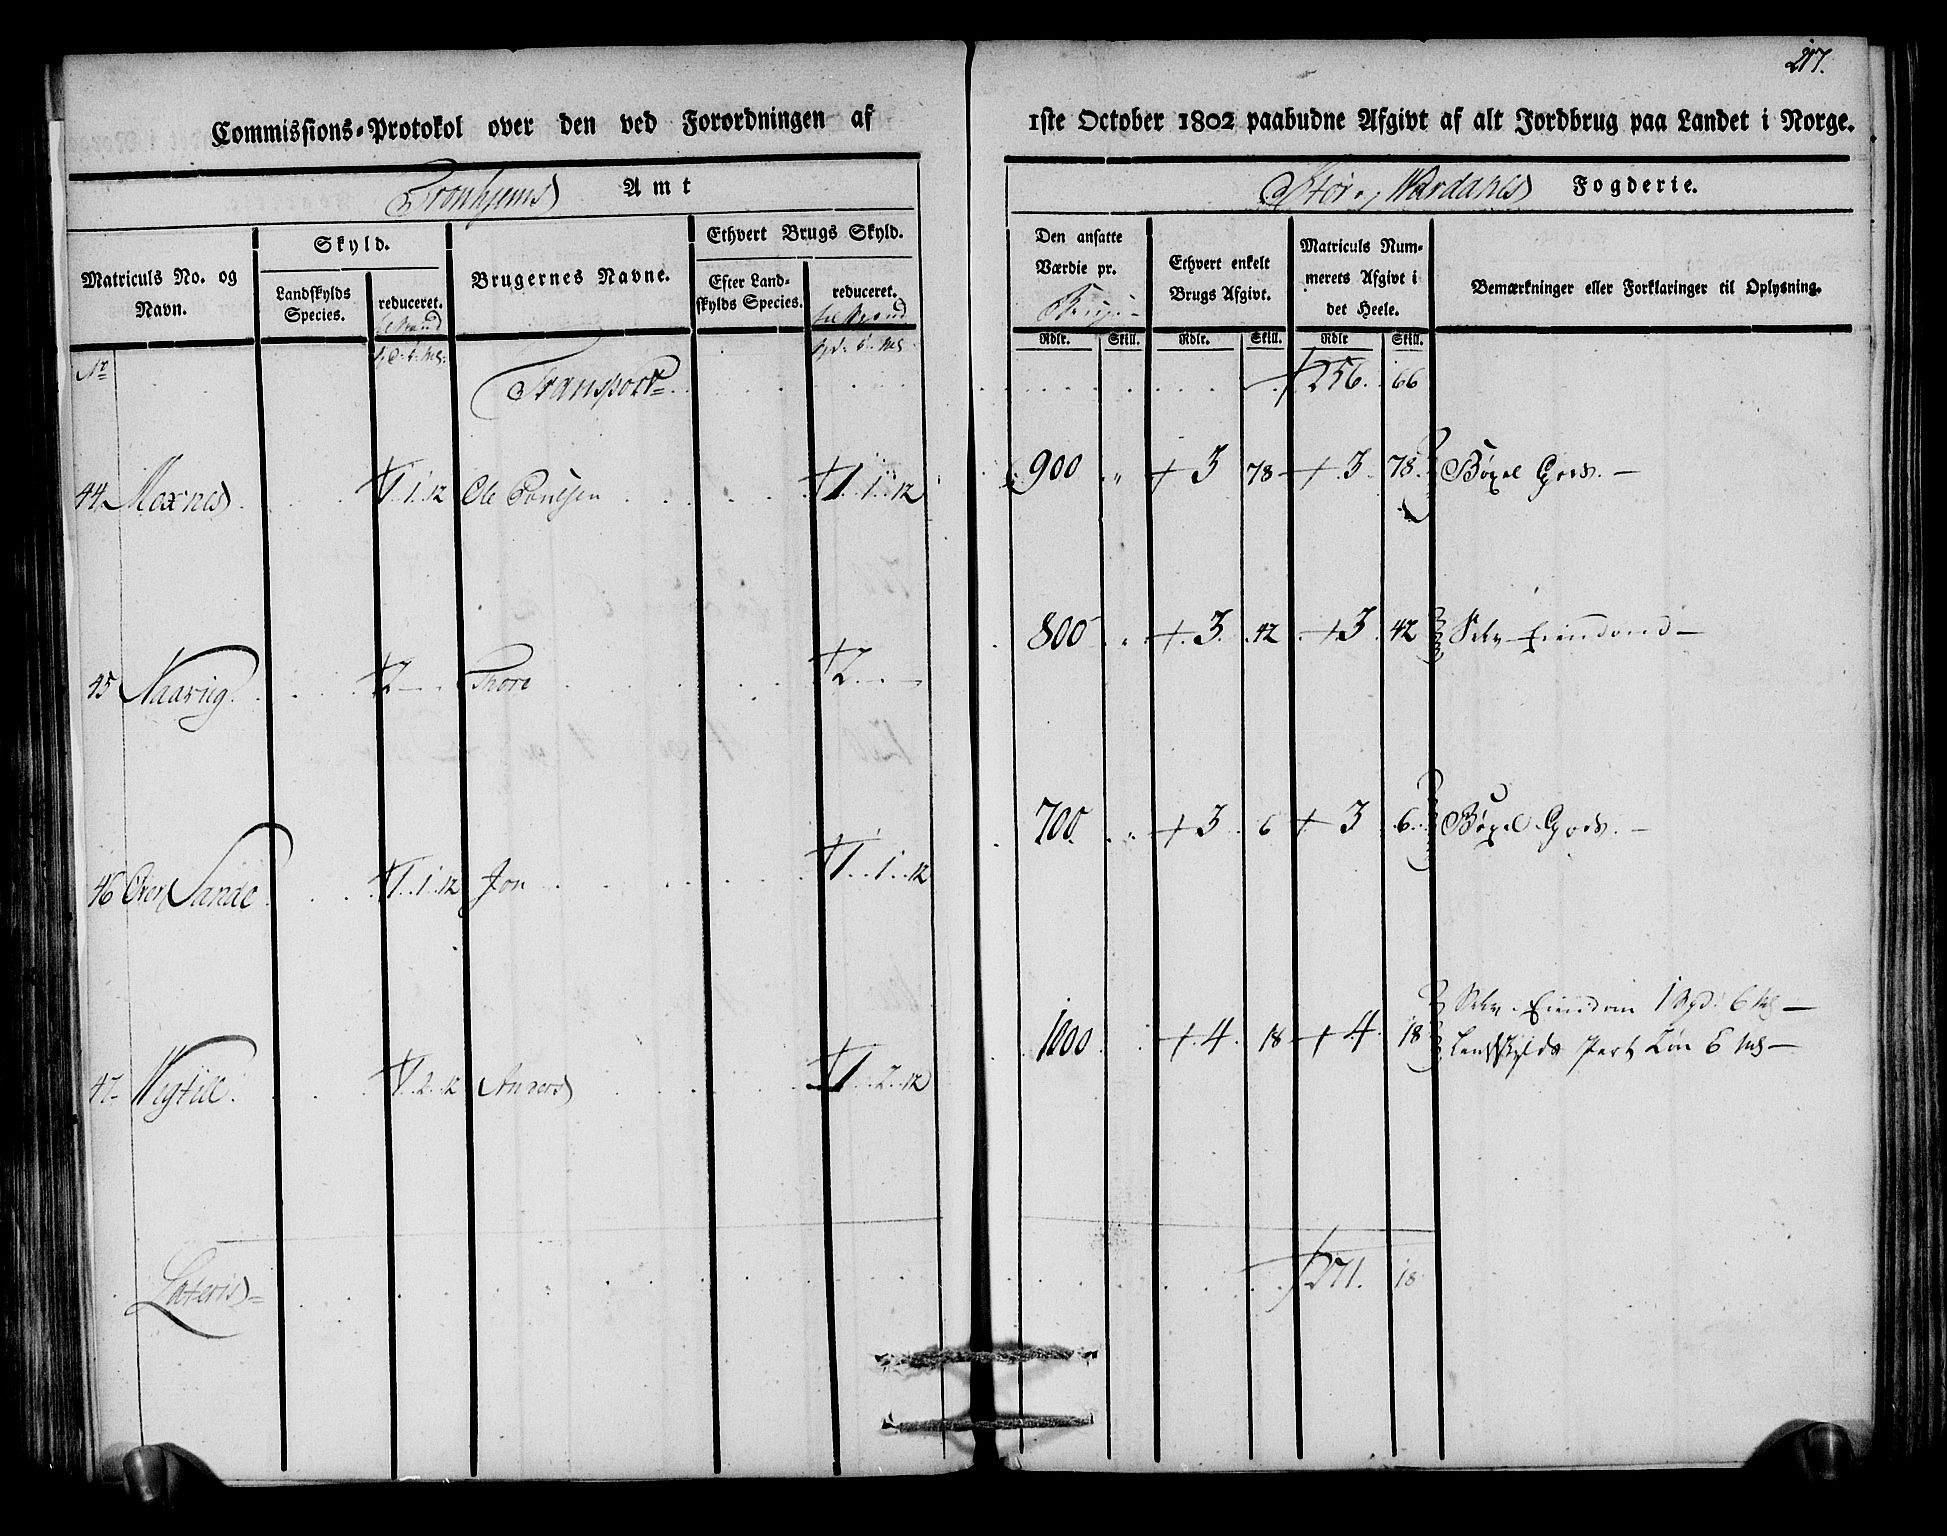 217.
Commissions-Protokol over den ved Forordningen af 1ste October 1802 paabudne Afgivt af alt Jordbrug paa Landet i Norge.
Tronhjems Amt
Stør- Værdahls Fogderie.
Matriculs No. og Navn.
Skyld.
Landskylds Species.
reduceret.
Brugernes Navne.
Ethvert Brugs Skyld.
Efter Landskylds Species.
reduceret.
Den ansatte Værdie pr. Brug
Ethvert enkelt Brugs Afgivt.
Matriculs Nummerets Afgivt i det Heele.
Bemærkninger eller Forklaringer til Oplysning.
Rdlr. Skill. Rdlr. Skill. Rdlr Skill.
No
Transport 256. 66
44 Moxnes 1. 1. 12 Ole 1. 1. 12 900 " 3 78 3. 78. Gods.
45 Naavug. 2 Thore 2 800 " 3. 42 3 42 Selv Eiendom
46 Over Sande 1. 1. 12 Jon 1. 1. 12 700. " 3 6 3 6. Gods.
47 1. 2. 12 Anders 1. 2. 12 1000 4. 18 4. 18 Selv Eiendom 1 Spd: 6 Mk
Landskylds Part 6 Mk
Lateris 271. 18